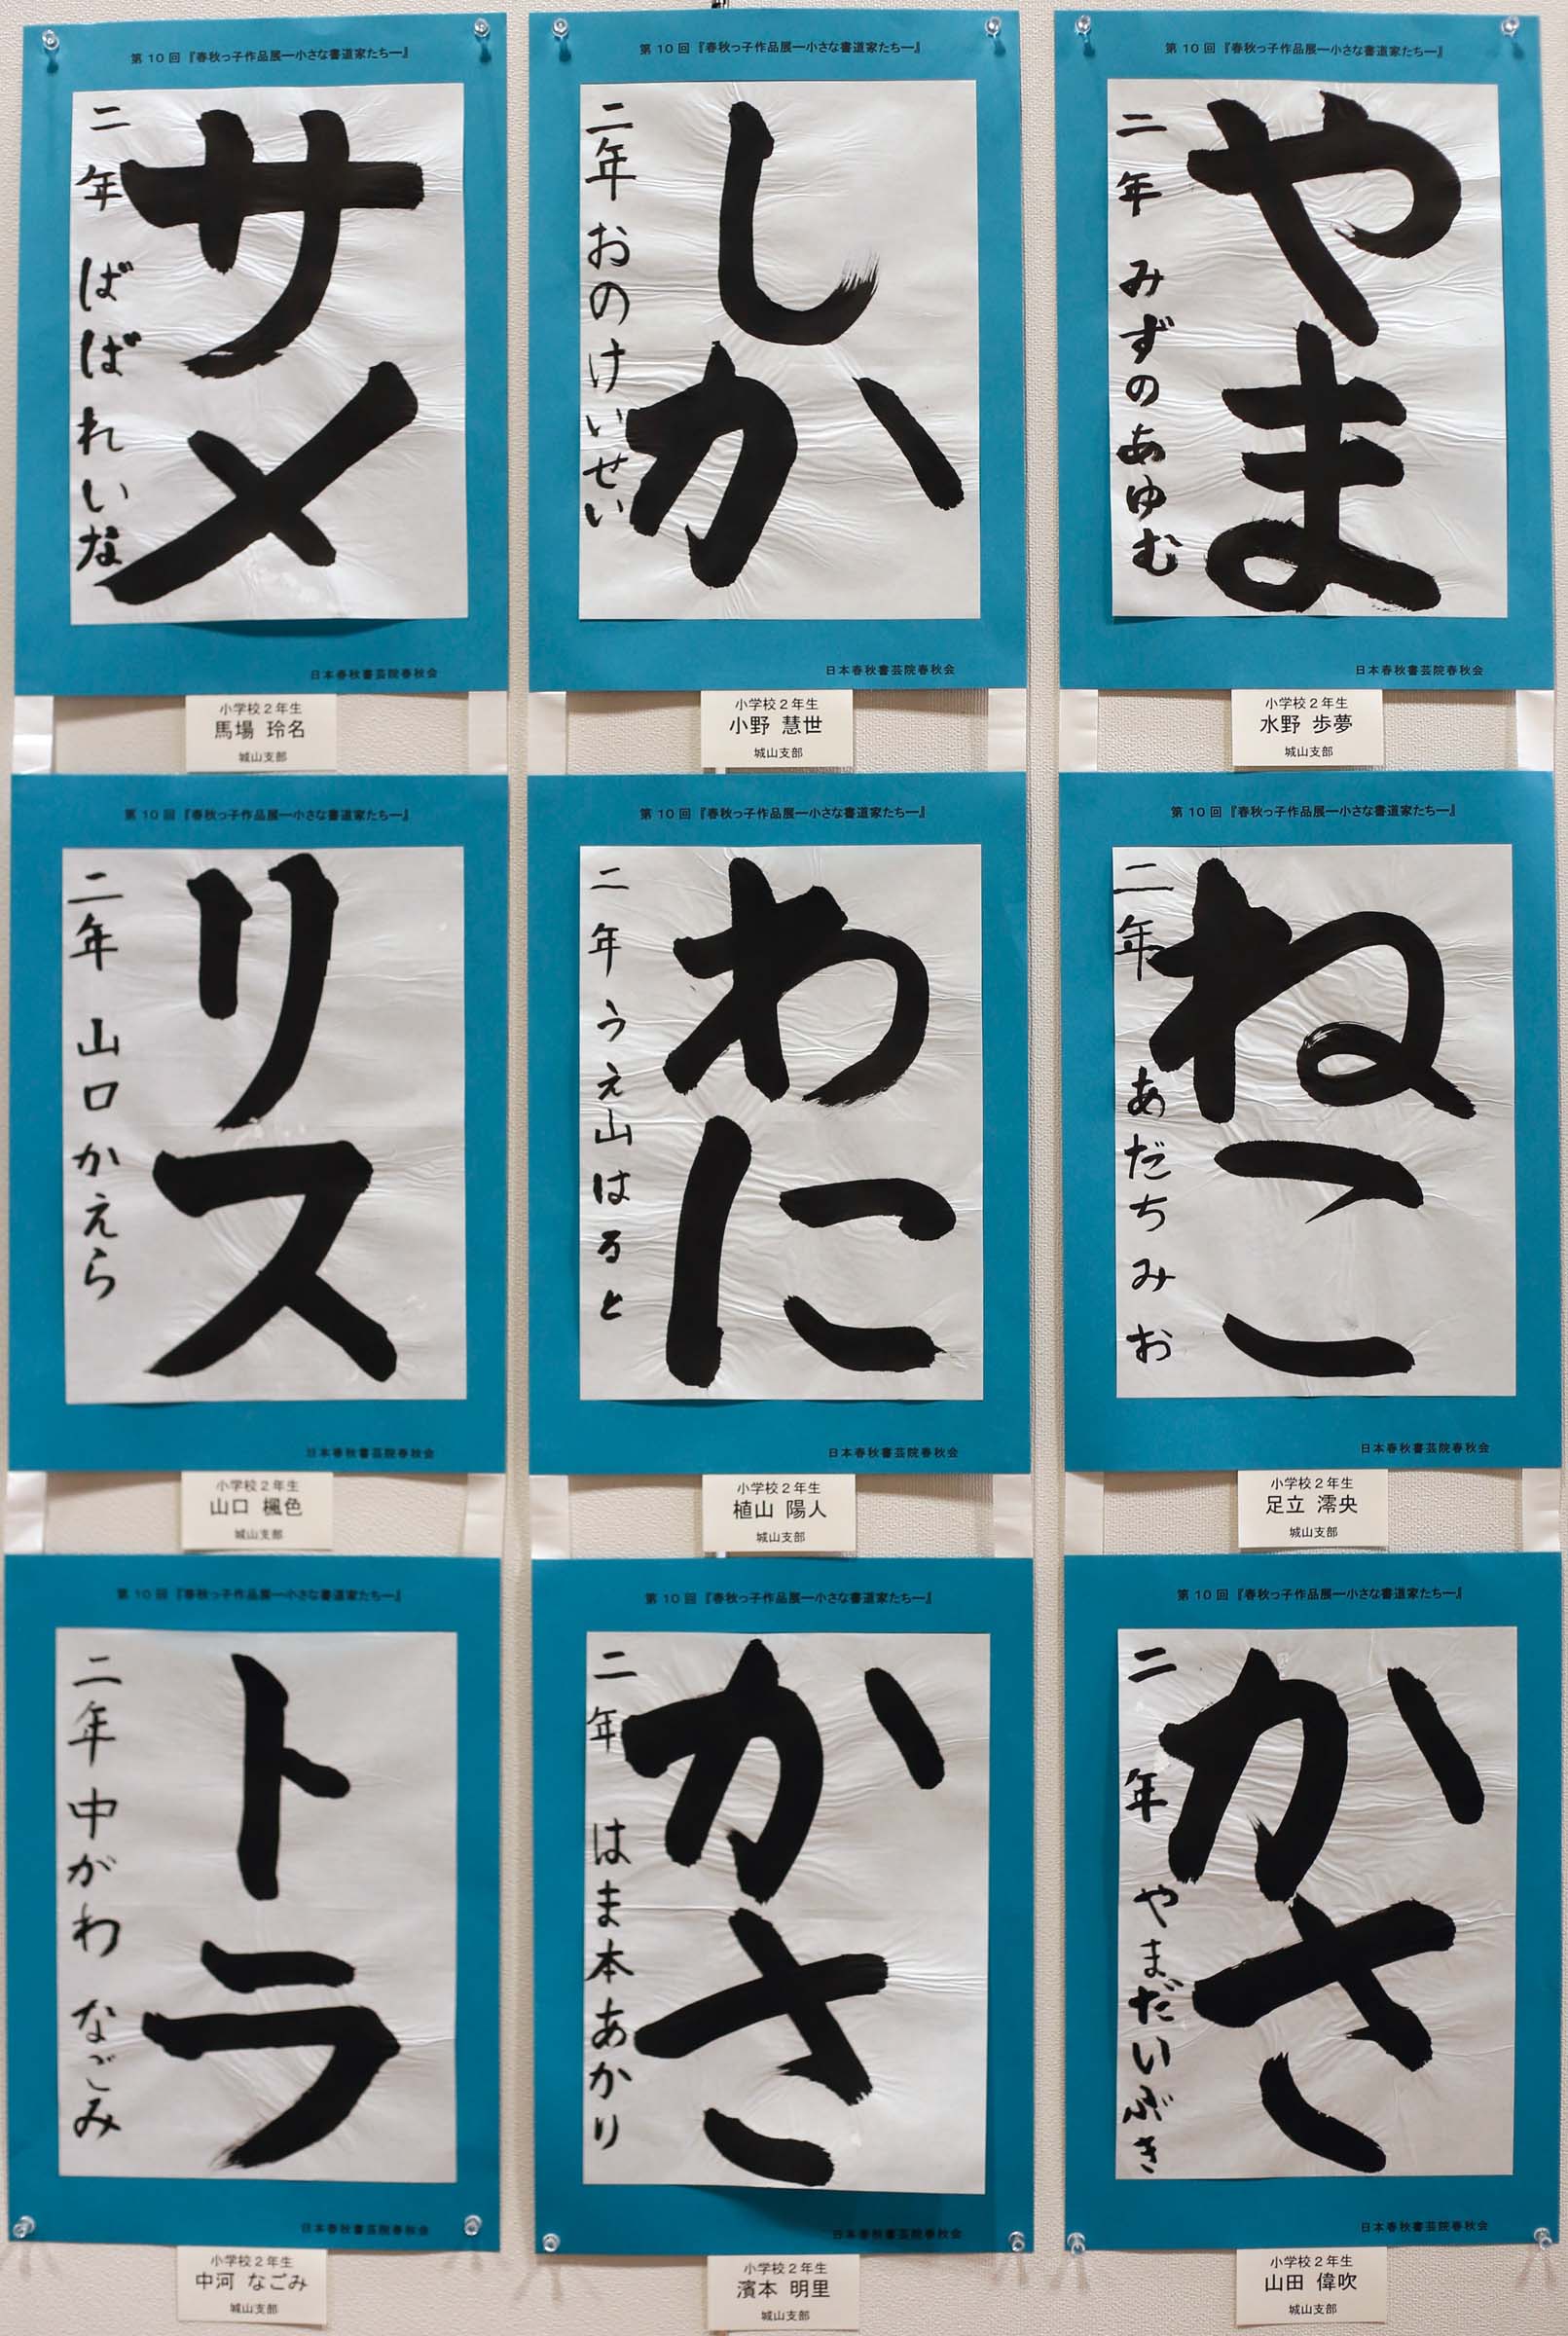 第10回『春秋っ子作品展―小さな書道家たち―』
サメ
二年 ばばれいな
日本春秋書芸院春秋会
小学校2年生
馬場 玲名
城山支部
第10回『春秋っ子作品展―小さな書道家たち―』
しか
二年 おのけいせい
日本春秋書芸院春秋会
小学校2年生
小野 慧世
城山支部
第10回『春秋っ子作品展―小さな書道家たち―』
やま
二年 みずのあゆむ
日本春秋書芸院春秋会
小学校2年生
水野 歩夢
城山支部
第10回『春秋っ子作品展―小さな書道家たち―』
リス
二年 山口かえら
日本春秋書芸院春秋会
小学校2年生
山口 楓色
城山支部
第10回『春秋っ子作品展―小さな書道家たち―』
わに
二年 うえ山はると
日本春秋書芸院春秋会
小学校2年生
植山 陽人
城山支部
第10回『春秋っ子作品展―小さな書道家たち―』
ねこ
二年 あだちみお
日本春秋書芸院春秋会
小学校2年生
足立 澪央
城山支部
第10回『春秋っ子作品展―小さな書道家たち―』
トラ
二年 中がわ なごみ
日本春秋書芸院春秋会
小学校2年生
中河 なごみ
城山支部
第10回『春秋っ子作品展―小さな書道家たち―』
かさ
二年 はま本あかり
日本春秋書芸院春秋会
小学校2年生
濱本 明里
城山支部
第10回『春秋っ子作品展―小さな書道家たち―』
かさ
二年 やまだいぶき
日本春秋書芸院春秋会
小学校2年生
山田 偉吹
城山支部